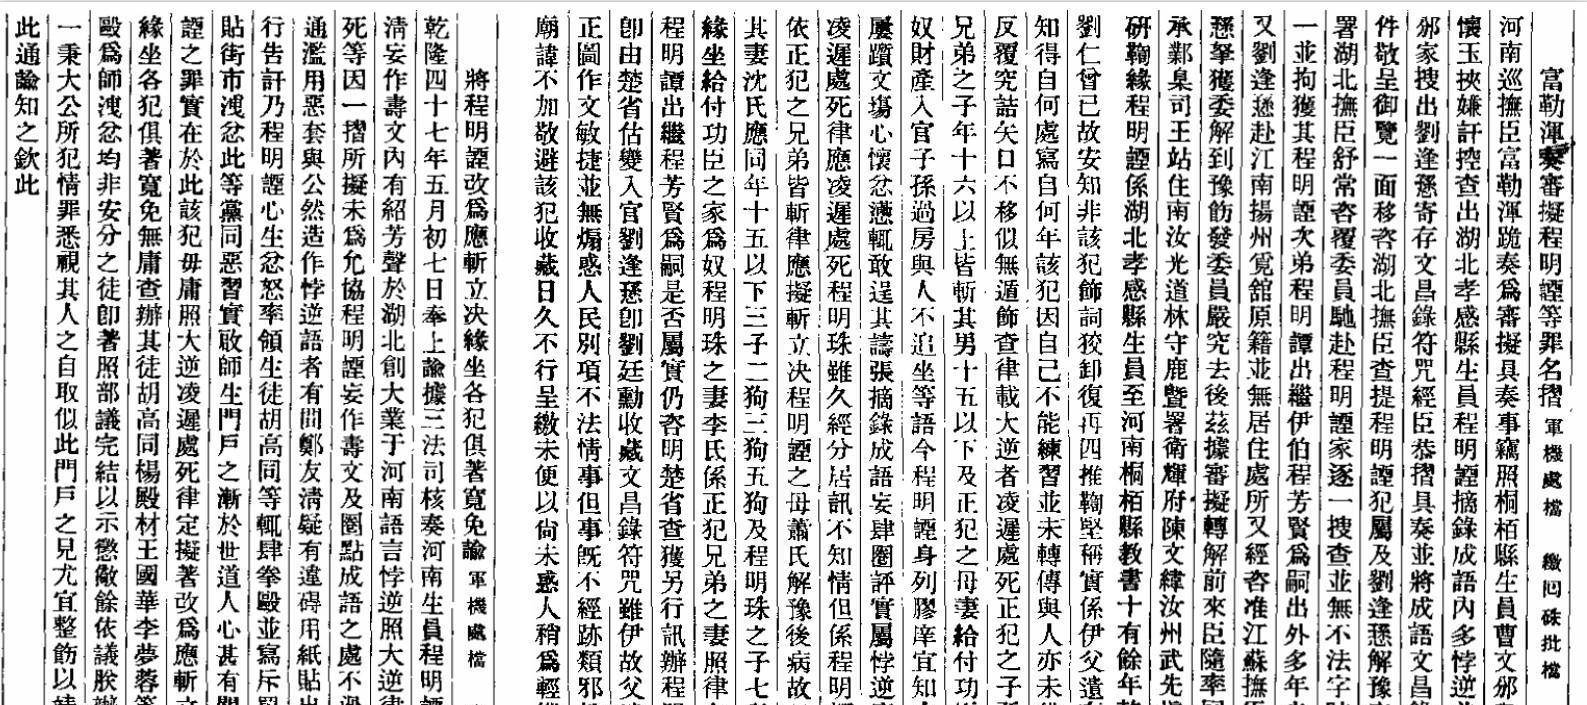 富勒渾奏審擬程明諲等罪名摺 軍機處檔 繳囘硃批檔
河南巡撫臣富勒渾跪奏爲審擬具奏事竊照桐栢縣生員曹文邠
懷玉挾嫌訐控查出湖北孝感縣生員程明諲摘錄成語內多悖逆
邠家搜出劉逢愻寄存文昌錄符咒經臣恭摺具奏並將成語文昌錄
件敬呈御覽一面移咨湖北撫臣查提程明諲犯屬及劉逢愻解豫
署湖北撫臣舒常咨覆委員馳赴程明諲家逐一搜查並無不法字
一並拘獲其程明諲次弟程明譚出繼伊伯程芳賢爲嗣出外多年
又劉逢愻赴江南揚州覓舘原籍並無居住處所又經咨准江蘇撫
愻拏獲委解到豫飭發委員嚴究去後茲據審擬轉解前來臣隨率
承鄴臬司王站住南汝光道林守鹿曁署衞輝府陳文緯汝州武先
硏鞫緣程明諲係湖北孝感縣生員至河南桐栢縣敎書十有餘年
劉仁曾已故安知非該犯飾詞狡卸復再四推鞫堅稱實係伊父遺
知得自何處寫自何年該犯因自己不能練習並未轉傳與人亦未
反覆究詰矢口不移似無遁飾查律載大逆者凌遲處死正犯之子
兄弟之子年十六以上皆斬其男十五以下及正犯之母妻給付功
奴財產入官子孫過房與人不追坐等語今程明諲身列膠庠宜知
屢躓文塲心懷忿懣輒敢逞其譸張摘錄成語妄肆圈評實屬悖逆
凌遲處死律應凌遲處死程明珠雖久經分居訊不知情但係程明
依正犯之兄弟皆斬律應擬斬立决程明諲之母蕭氏解豫後病故
其妻沈氏應同年十五以下三子二狗三狗五狗及程明珠之子七
緣坐給付功臣之家爲奴程明珠之妻李氏係正犯兄弟之妻照律
程明譚出繼程芳賢爲嗣是否屬實仍咨明楚省查獲另行訊辦程
卽由楚省估變入官劉逢愻卽劉廷勳收藏文昌錄符咒雖伊故父
正圖作文敏捷並無煽惑人民別項不法情事但事旣不經跡類邪
廟諱不加敬避該犯收藏日久不行呈繳未便以尙未惑人稍爲輕
將程明諲改爲應斬立决緣坐各犯俱著寬免諭 軍機處檔
乾隆四十七年五月初七日奉上諭據三法司核奏河南生員程明諲
淸妄作壽文內有紹芳聲於湖北創大業于河南語言悖逆照大逆律
死等因一摺所擬未爲允協程明諲妄作壽文及圈點成語之處不過
通濫用惡套與公然造作悖逆語者有間鄭友淸疑有違碍用紙貼出
行告訐乃程明諲心生忿怒率領生徒胡高同等輒肆拳毆並寫斥
貼街市洩忿此等黨同惡習實啟師生門戶之漸於世道人心甚有關
諲之罪實在於此該犯毋庸照大逆凌遲處死律定擬著改爲應斬立
緣坐各犯俱著寬免無庸查辦其徒胡高同楊殿材王國華李夢蓉等
毆爲師洩忿均非安分之徒卽著照部議完結以示懲儆餘依議朕辦
一秉大公所犯情罪悉視其人之自取似此門戶之見尤宜整飭以靖
此通諭知之欽此